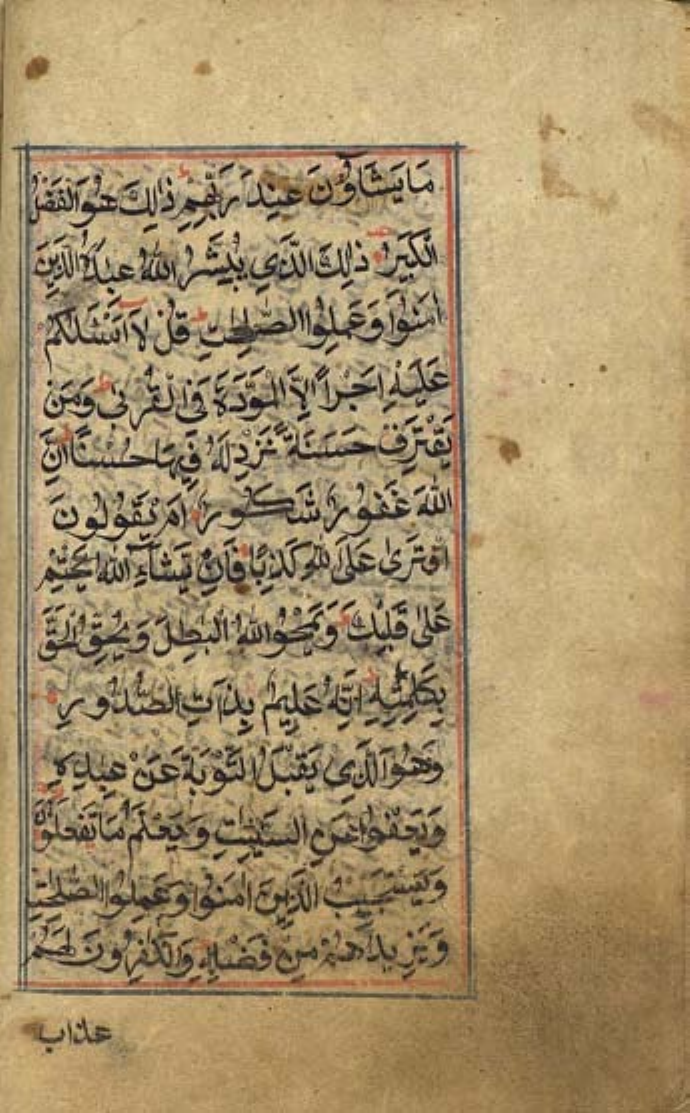 مَا يَشَاؤُنَ عِنْدَ رَبِّهِمْ ذٰلِكَ هُوَ الْفَضْلُ
الْكَبِيْرُ ذٰلِكَ الَّذِيْ يُبَشِّرُ اللّٰهُ عِبَادَهُ الَّذِيْنَ
اٰمَنُوْا وَعَمِلُوا الصّٰلِحٰتِ قُلْ لَا اَسْئَلُكُمْ
عَلَيْهِ اَجْراً اِلَّا الْمَوَدَّةَ فِى الْقُرْبٰى وَمَنْ
يَقْتَرِفْ حَسَنَةً نَزِدْ لَهُ فِيْهَا حُسْنًا اِنَّ
اللّٰهَ غَفُوْرٌ شَكُوْرٌ اَمْ يَقُوْلُوْنَ
افْتَرٰى عَلَى اللّٰهِ كَذِبًا فَاِنْ يَشَاءِ اللّٰهُ يَخْتِمْ
عَلٰى قَلْبِكَ وَيَمْحُ اللّٰهُ الْبٰطِلَ وَيُحِقُّ الْحَقَّ
بِكَلِمٰتِهٖ اِنَّهُ عَلِيْمٌ بِذَاتِ الصُّدُوْرِ
وَهُوَ الَّذِيْ يَقْبَلُ التَّوْبَةَ عَنْ عِبَادِهٖ
وَيَعْفُوْا عَنِ السَّيِّئٰتِ وَيَعْلَمُ مَا تَفْعَلُوْنَ
وَيَسْتَجِيْبُ الَّذِيْنَ اٰمَنُوْا وَعَمِلُوا الصّٰلِحٰتِ
وَيَزِيْدُهُمْ مِنْ فَضْلِهٖ وَالْكٰفِرُوْنَ لَهُمْ
عذاب